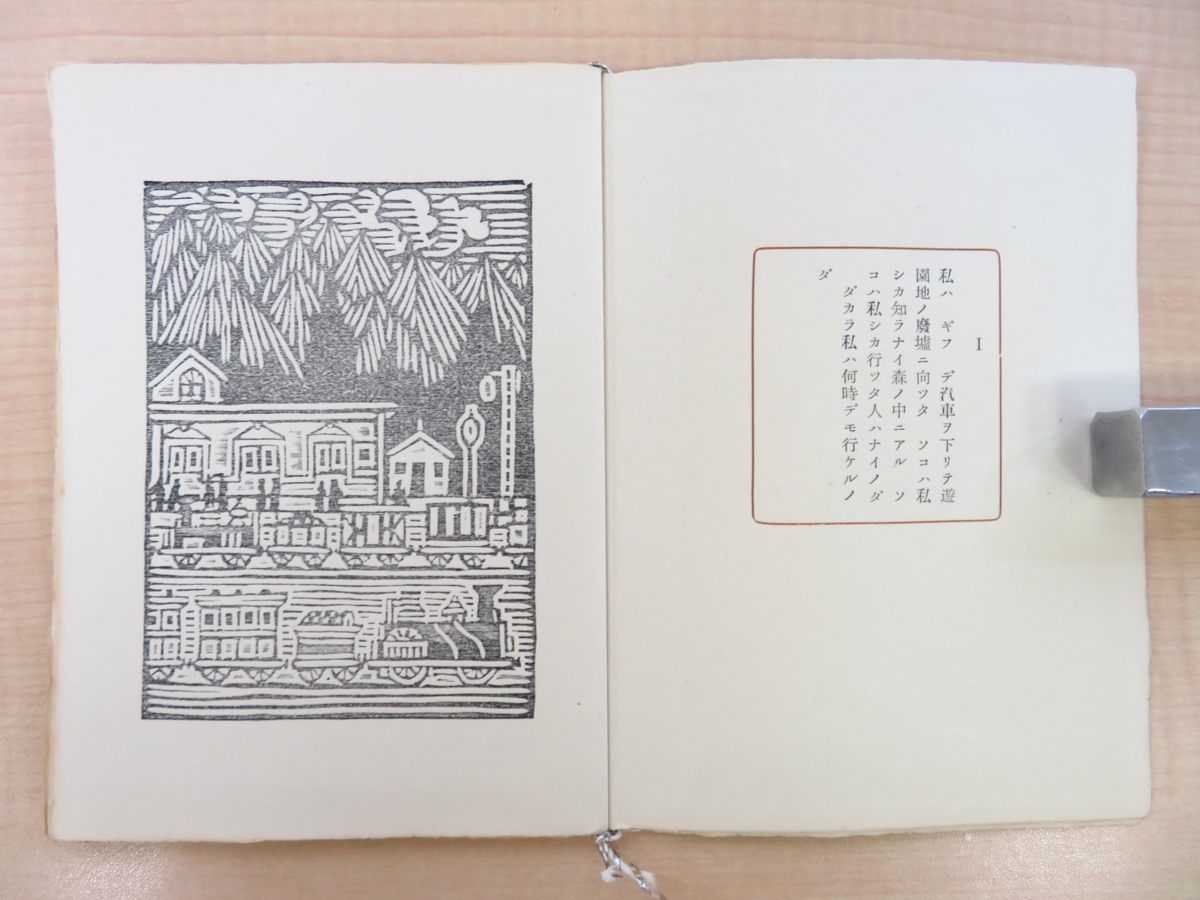 I
私ハ ギフ デ汽車ヲ下リテ遊
園地ノ廢墟ニ向ツタ ソコハ私
シカ知ラナイ森ノ中ニアル ソ
コハ私シカ行ツタ人ハナイノダ
ダカラ私ハ何時デモ行ケルノ
ダ